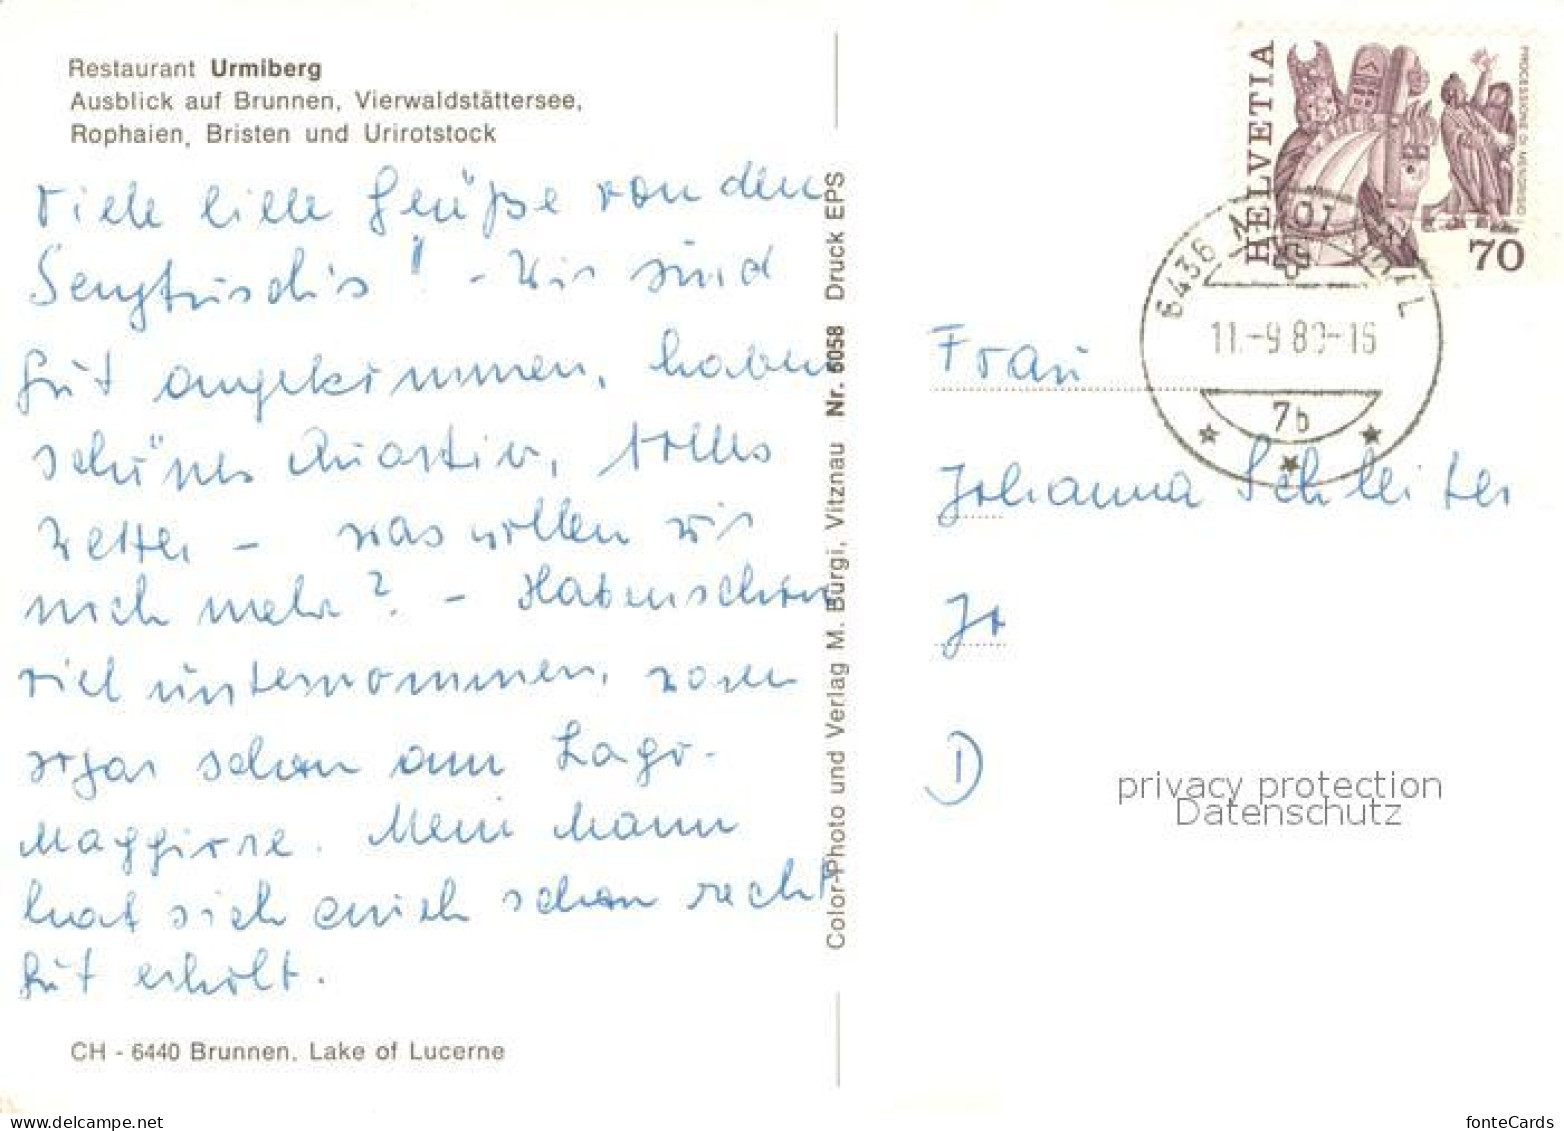 Restaurant Urmiberg
Ausblick auf Brunnen, Vierwaldstättersee,
Rophaien, Bristen und Urirotstock
Viele liebe Grüße von den
! - Wir sind
gut angekommen, haben
schönes Quartier, tolles
Wetter - was wollen wir
noch mehr? - Haben schon
viel unternommen, waren
sogar schon am Lago-
Maggiore. Mein Mann
hat sich auch schon recht
gut erholt.
CH - 6440 Brunnen, Lake of Lucerne
Color-Photo und Verlag M. Bürgi, Vitznau Nr. 6058 Druck EPS
HELVETIA
PROCESSIONE DI MENDRISIO
70
6436
11.-9 80-16
7b
Frau
Johanna Schleiter
D
privacy protection
Datenschutz
www.delcampe.net
fonteCards